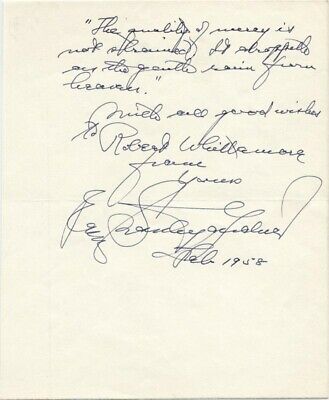 "The quality of mercy is
not strained, It droppeth
as the gentle rain from
heaven."
With all good wishes
to Robert Whittemore
from
Yours
Stanley
Feb 1958